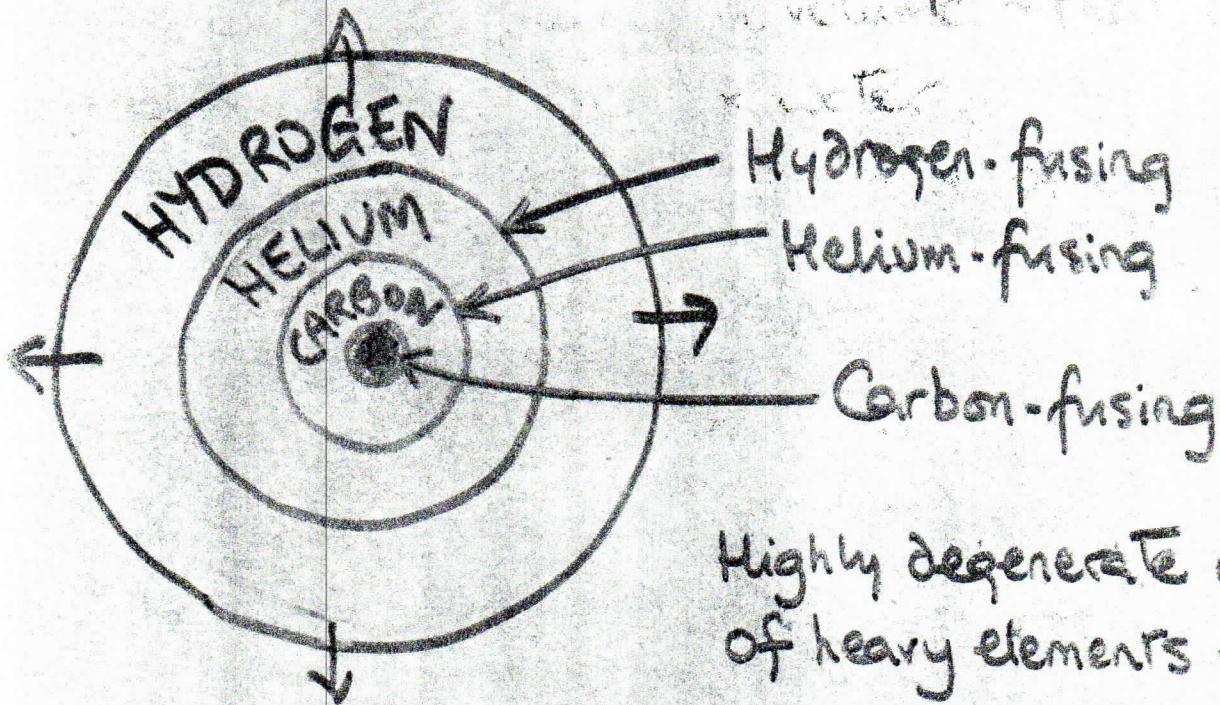 HYDROGEN
HELIUM
CARBON
Hydrogen-fusing
Helium-fusing
Carbon-fusing
Highly degenerate
of heavy elements